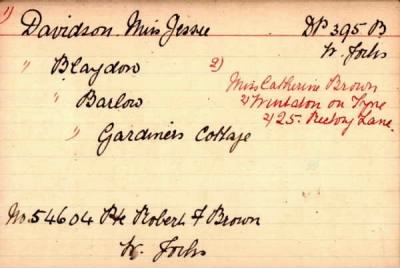 1) Davidson. Miss Jessie DP 395 B
W. Forks
" Blaydon 2)
Miss Catherine Brown
" Barlow 2) Winlaton on Tyne
2) 25. Rectory Lane.
" Gardiners Cottage
No. 54604 Pte Robert F Brown
W. Forks